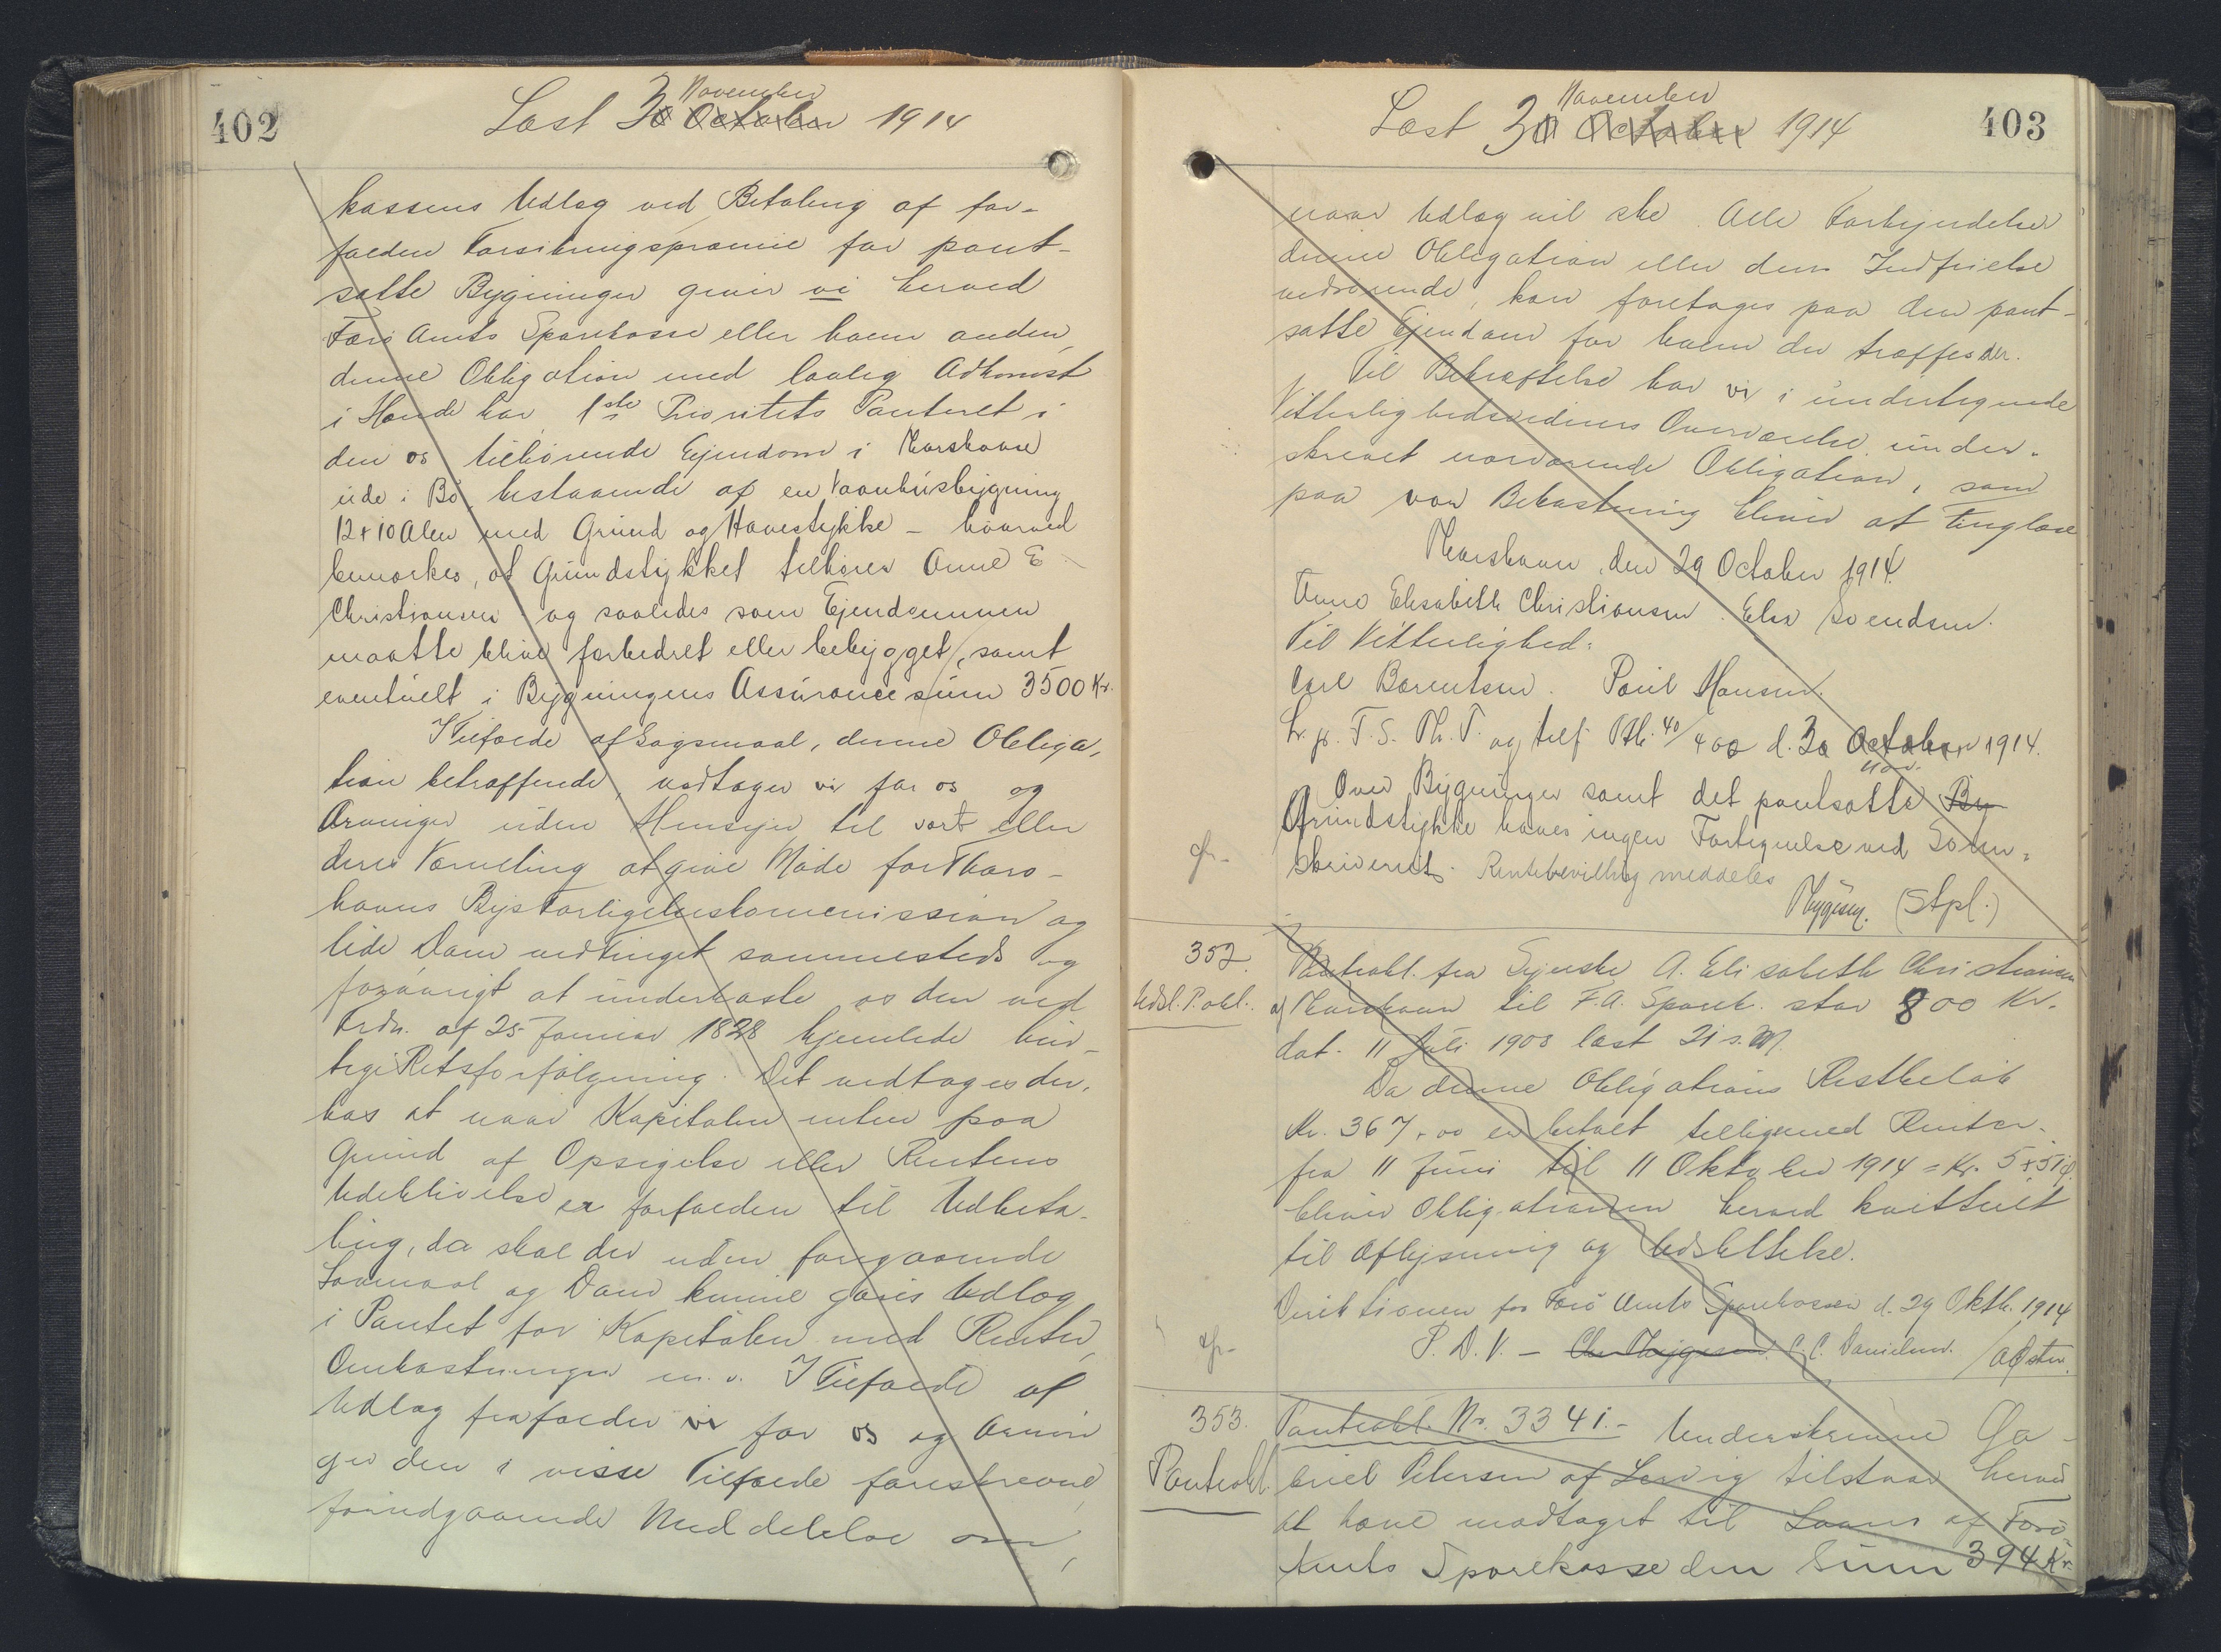 402
November
Læst 30 October 1914
kassens Udlæg ved Betaling af for-
falden Forsikringspræmie for pant-
satte Bygninger giver vi herved
Færø Amts Sparekasse eller hvem anden,
denne Obligation med lovlig Adkomst
i Hænde har, 1ste Prioritets Panteret i
den os tilhørende Ejendom i Thorshavn
ude i Bø, bestaaende af en Vaanhusbygning
12 x 10 Alen med Grund og Havestykke – hvorved
bemærkes, at Grundstykket tilhører Anne E
Christiansen og saaledes som Ejendommen
maatte blive forbedret eller bebygget, samt
eventuelt i Bygningens Assurance sum 3500 Kr.
I Tilfælde af Søgsmaal, denne Obliga-
tion betræffende, vedtager vi for os og
Arvinger uden Hensyn til vort eller
deres Værneting at give Møde for Thors-
havns Bys Forligelseskommission og
lide Dom ved Tinget sammesteds og
forøvrigt at underkaste os den ved
Frdn. af 25 Januar 1828 hjemlede hur-
tige Retsforfølgning. Det vedtages der-
hos at naar Kapitalen enten paa
Grund af Opsigelse eller Rentens
Udeblivelse er forfalden til Udbeta-
ling, da skal der uden foregaaende
Lovmaal og Dom kunne gøres Udlæg
i Pantet for Kapitalen med Renter,
Omkostninger m. v. I Tilfælde af
Udlæg frafalder vi for os og Arvin
ger den i visse Tilfælde foreskrevne
forudgaaende Meddelelse om,
November
Læst 30 October 1914
403
naar Udlæg vil ske. Alle Forkyndelser
denne Obligation eller dens Indfrielse
vedrørende, kan foretages paa den pant-
satte Ejendom for hvem der træffes der.
Til Bekræftelse har vi i undertegnede
Vitterlighedsvidners Overværelse under-
skrevet nærværende Obligation, som
paa vor Bekostning bliver at tinglæse
Thorshavn, den 29 October 1914.
Anne Elisabeth Christiansen. Elso Svendsen.
Til Vitterlighed:
Carl Børentsen. Poul Hansen.
L. p. F. S. Th. T. og tilf Ptb. 40/400 d. 30 October 1914.
nov.
Over Bygninger samt det pantsatte By
Grundstykke haves ingen Fortegnelse ved Soren-
skriveriet. Rentebevilling meddeles
Thygesen. (Stpl.)
352.
Udsl. P. obl.
Panteobl. fra Syerske A. Elisabeth Christiansen
af Thorshavn til F. A. Spark. stor 800 Kr.
dat. 11 Juli 1903 læst 21 s. M.
Da denne Obligations Restbeløb
Kr. 367,00 er betalt tilligemed Renter
fra 11 Juni til 11 Oktober 1914 = Kr. 5 + 51 ø.
bliver Obligationen herved kvitteret
til Aflysning og Udslettelse.
Direktionen for Færø Amts Sparekasse d. 29 Oktb. 1914
P. D. V. – Chr Thygesen. C. C. Danielsen.
353.
Panteobl.
Panteobl. Nr. 3341. – Underskrevne Ga-
briel Petersen af Lervig tilstaar herved
at have modtaget til Laans af Færø
Amts Sparekasse den Sum 394 Kr.